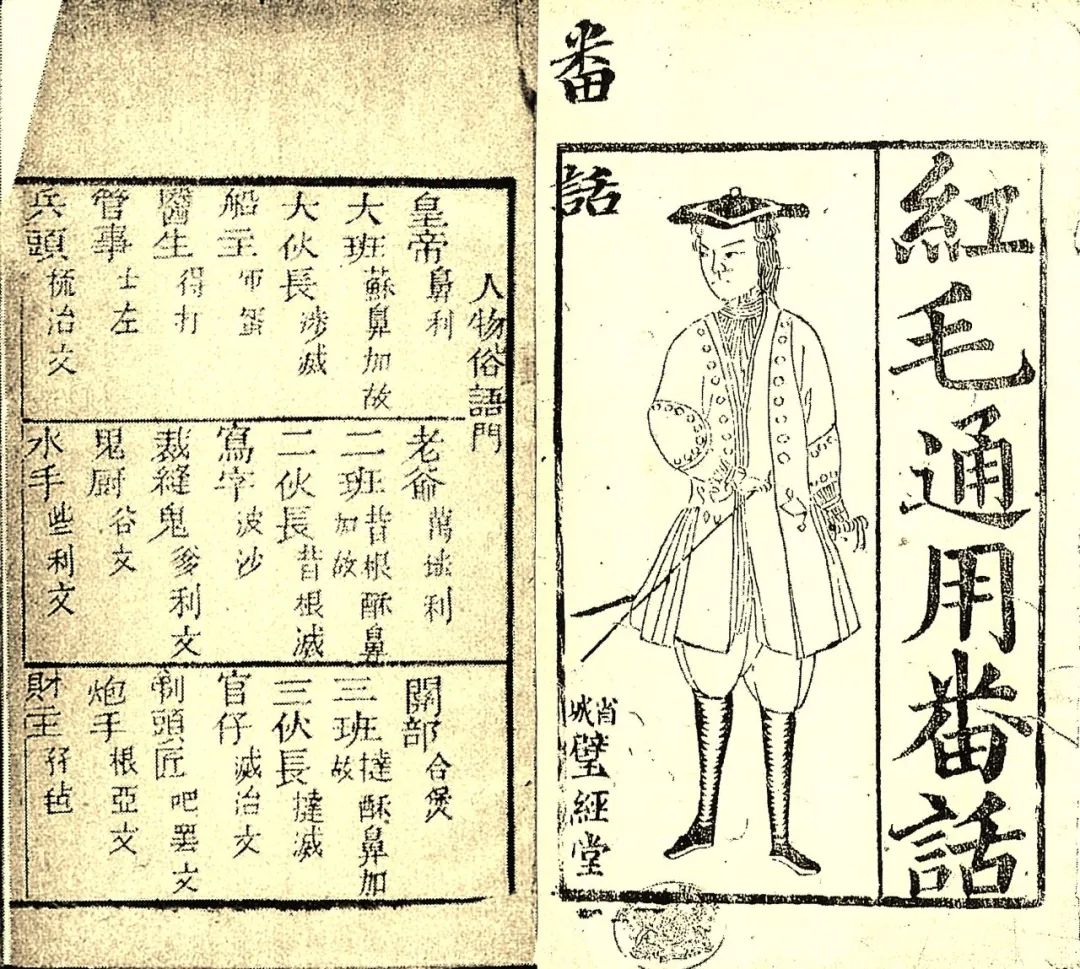 紅毛通用番話
番話
省城璧經堂
人物俗語門
皇帝 鼻利
大班 蘇鼻加故
大伙長 涉滅
船主 蛋
醫生 得打
管事 士左
兵頭 梳治文
老爺 萬利
二班 昔根酥鼻加故
二伙長 昔根滅
寫字 波沙
裁縫鬼 爹利文
鬼厨 谷文
水手 些利文
關部 合煲
三班 撻酥鼻加故
三伙長 撻滅
官仔 滅治文
剃頭匠 吧罷文
炮手 根亞文
財主 孖毡